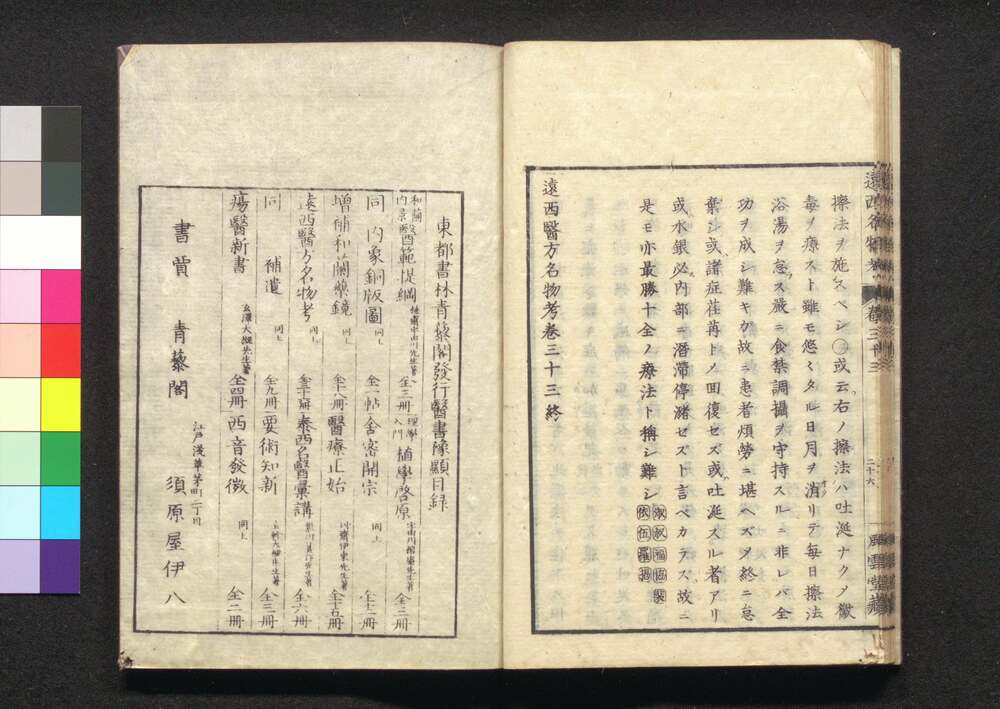 擦法ヲ施スベシ〇或云右ノ擦法ハ吐涎ナクノ黴
毒ヲ療スト雖モ悠々タル日月ヲ消リテ毎日擦法
浴湯ヲ怠ス嚴ニ食禁調攝ヲ守持スルニ非レバ全
功ヲ成シ難キガ故ニ患者煩勞ニ堪ヘズメ終ニ怠
棄シ或ハ諸症荏苒トメ回復セズ或ハ吐涎スル者アリ
或ハ水銀必ス内部ニ潛滞停瀦セズト言ベカラズ故ニ
是モ亦最勝十全ノ療法ト稱シ難シ
遠西醫方名物考卷三十三終
遠西名物考 卷三十三 二十六 風雲堂藏
東都書林青藜閣發行醫書豫顯目録
和蘭内景 醫範提綱 榛齋宇田川先生著 全三冊
理學入門 植學啓原 宇田川榕菴先生著 全三冊
同 内象銅版圖 同上 全一帖
舍密開宗 同上 全廿一冊
增補和蘭藥鏡 同上 全十八冊
醫療正始 伊東先生著 全廿四冊
遠西醫方名物考 同上
泰西名醫彙講 先生著 全六冊
同 補遺 同上 全九冊
要術知新 先生著 全三冊
瘍醫新書 玄澤大槻先生著 全四冊
西音發微 同上 全二冊
書賈 青藜閣
江戸淺草茅町二丁目
須原屋伊八